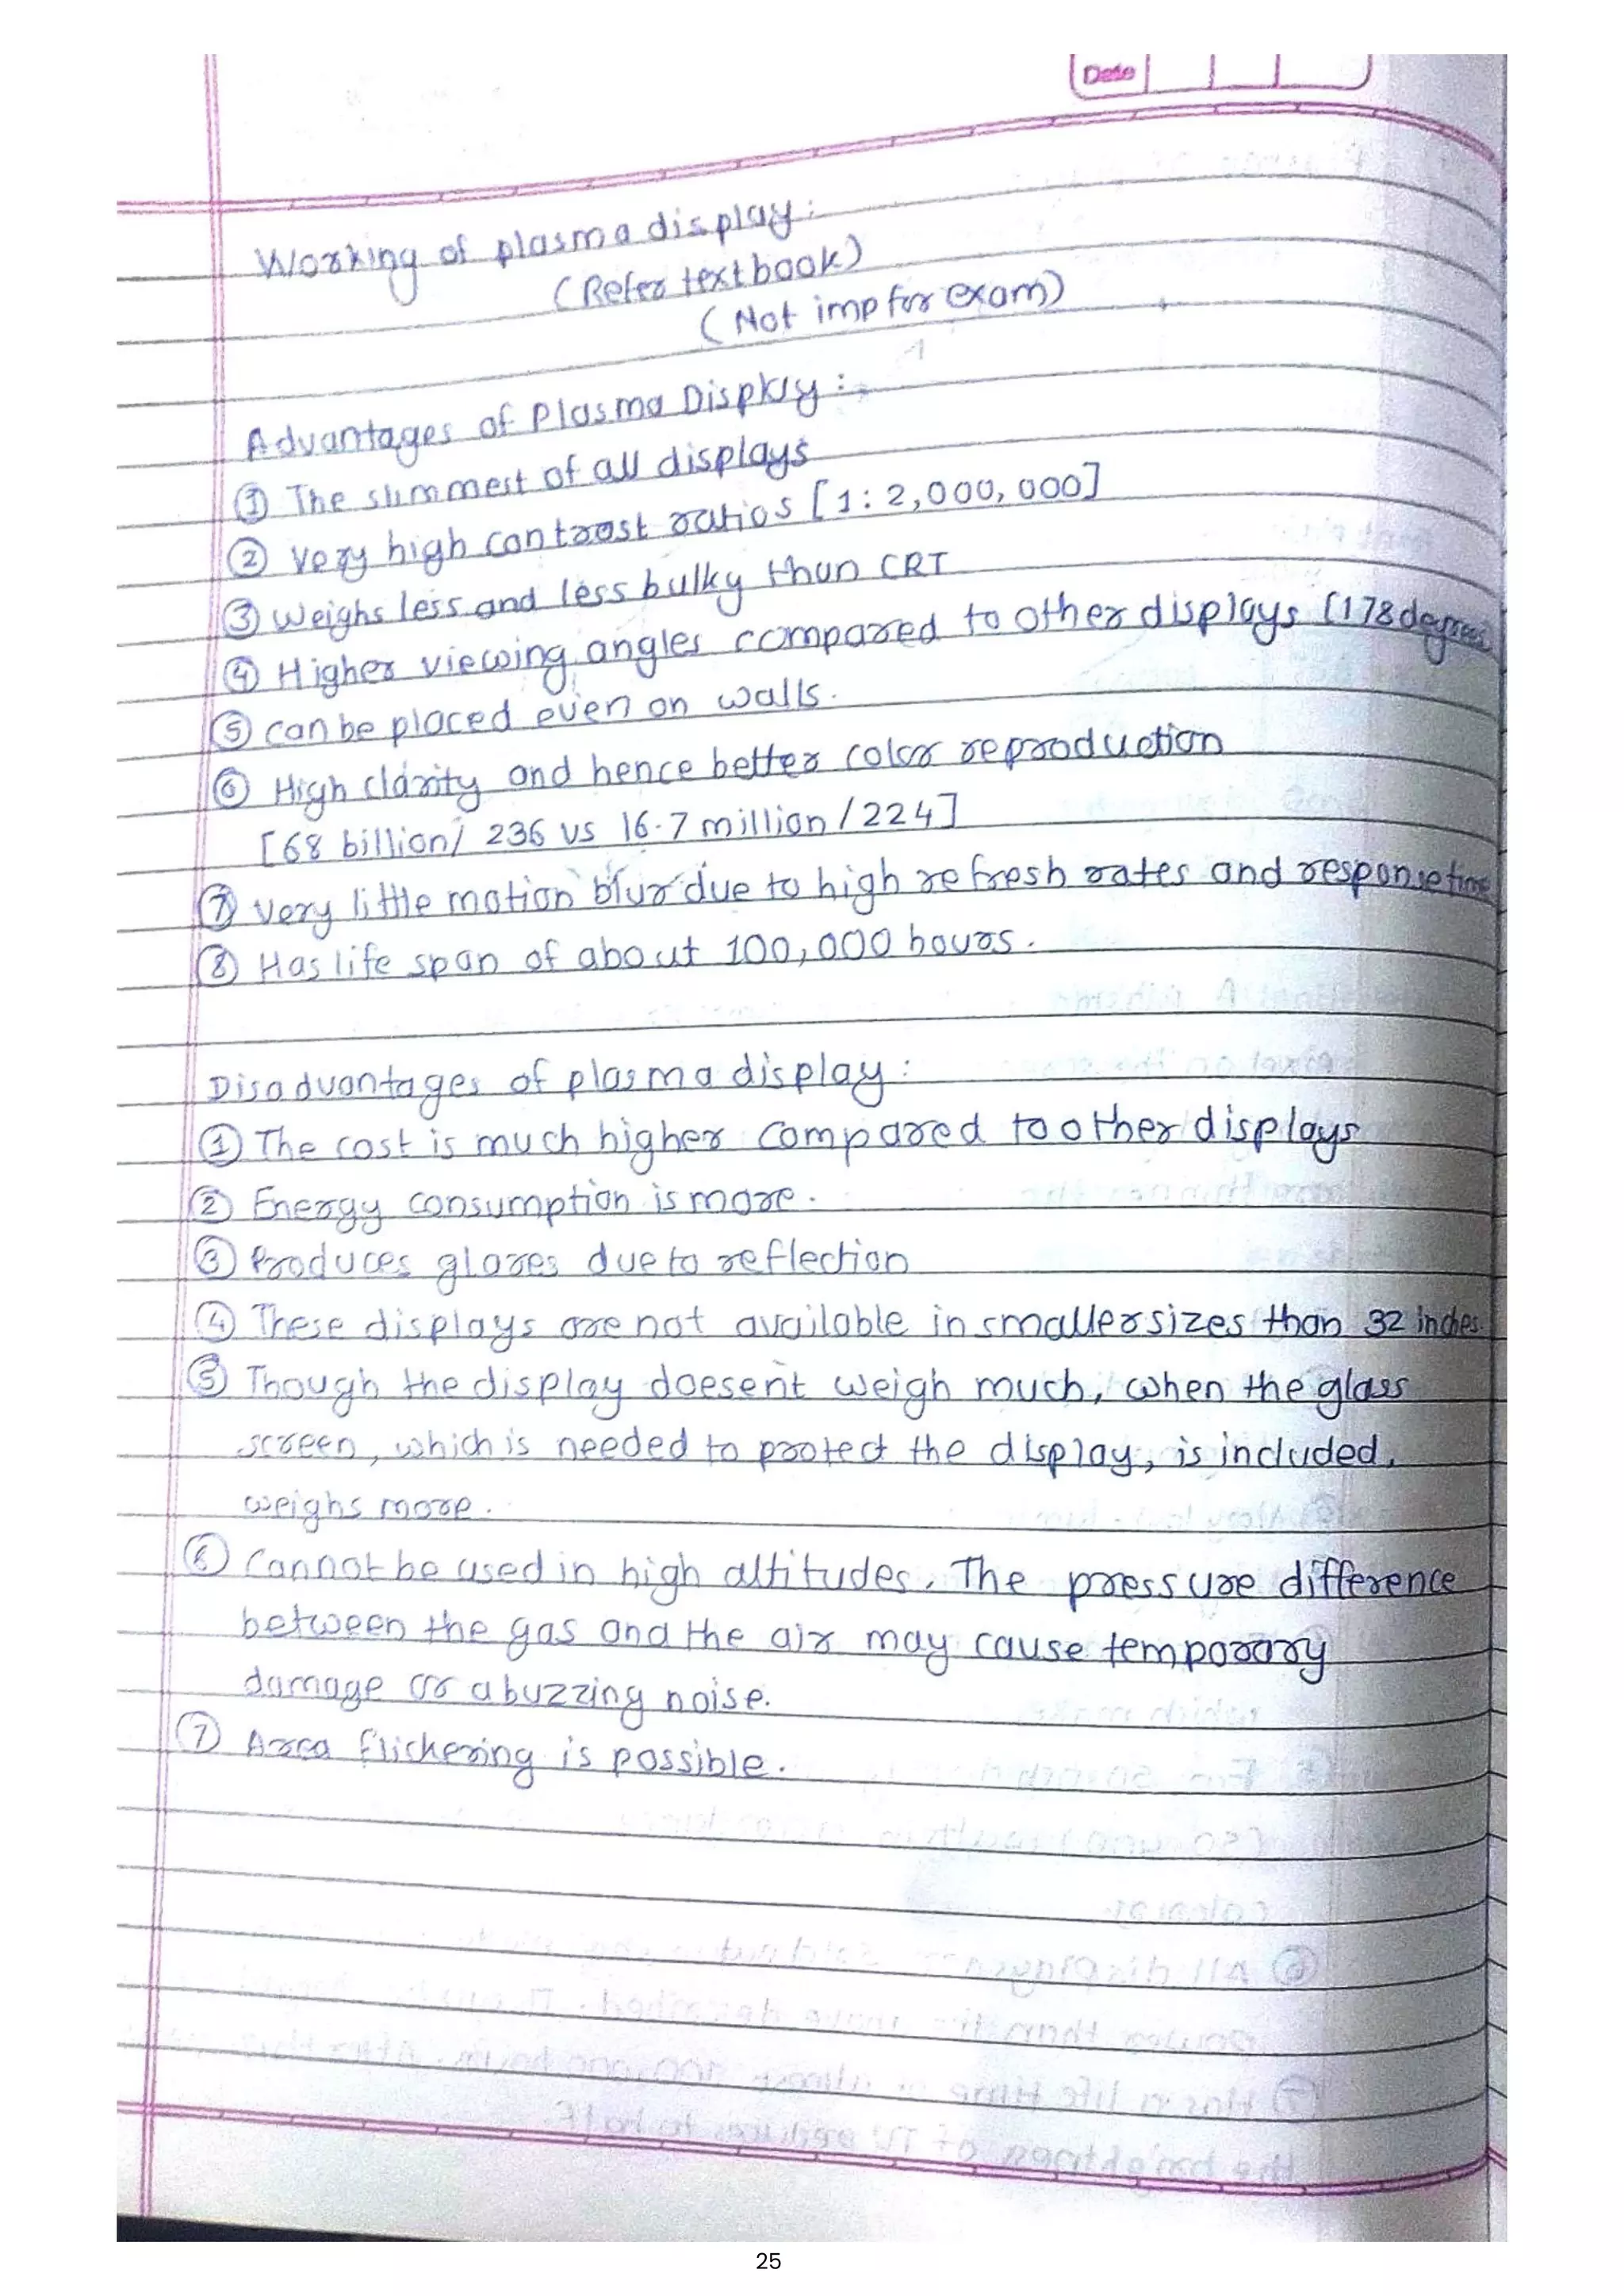 Date
Working of plasma display:
(Refer textbook)
(Not imp for exam)
Advantages of Plasma Display:
① The slimmest of all displays
② Very high contrast ratios [1: 2,000,000]
③ Weighs less and less bulky than CRT
④ Higher viewing angles compared to other displays [178 degrees
⑤ can be placed even on walls.
⑥ High clarity and hence better color reproduction
[68 billion/ 236 vs 16.7 million / 224]
⑦ Very little motion blur due to high refresh rates and response time
⑧ Has life span of about 100,000 hours.
Disadvantages of plasma display:
① The cost is much higher compared to other displays
② Energy consumption is more.
③ Produces glares due to reflection
④ These displays are not available in smaller sizes than 32 inches.
⑤ Though the display doesent weigh much, when the glass
screen, which is needed to protect the display, is included,
weighs more.
⑥ Cannot be used in high altitudes. The pressure difference
between the gas and the air may cause temporary
damage or a buzzing noise.
⑦ Area flickering is possible.
25